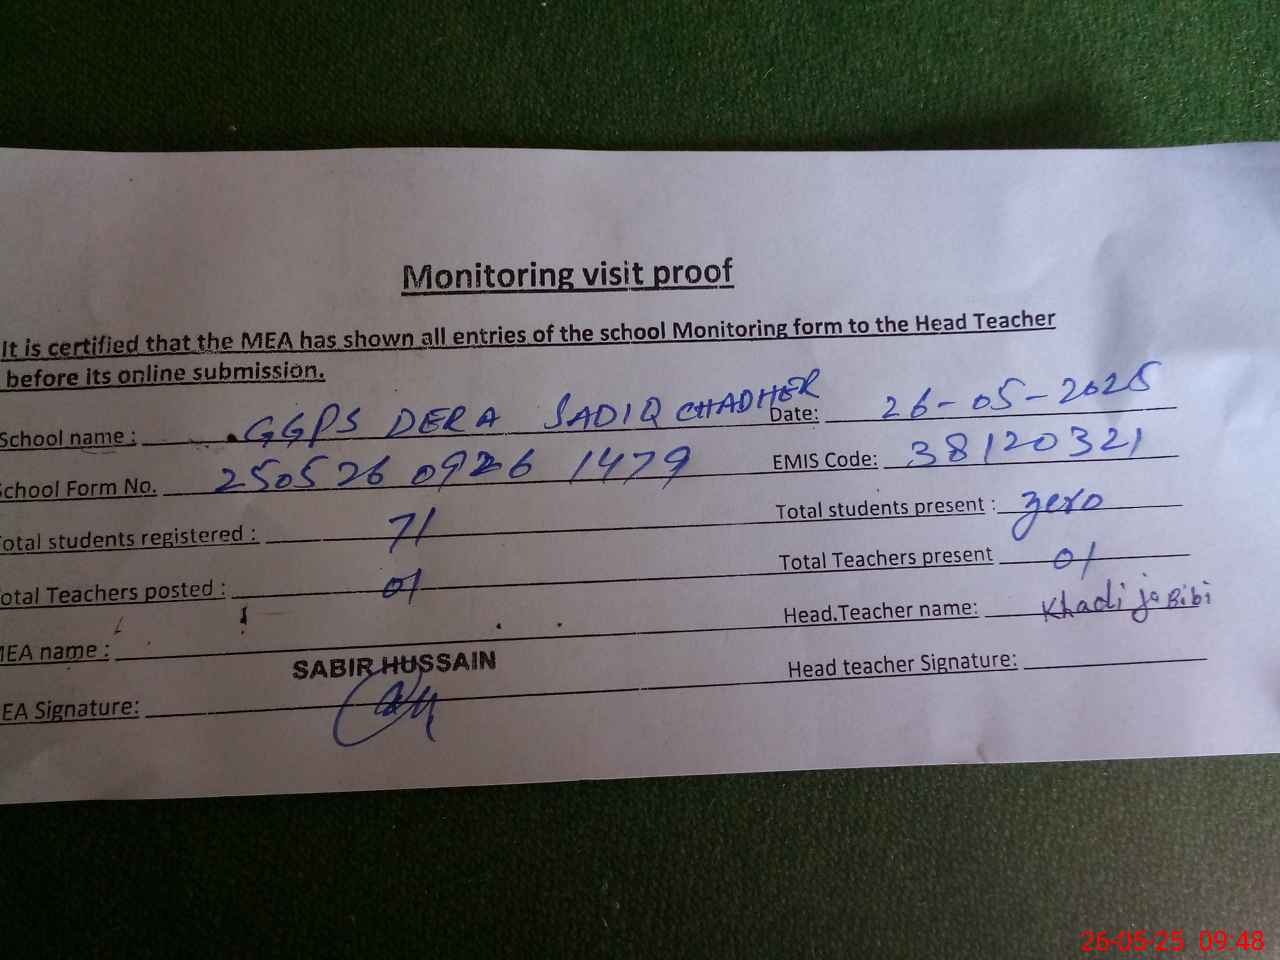 Monitoring visit proof
It is certified that the MEA has shown all entries of the school Monitoring form to the Head Teacher
before its online submission.
School name : GGPS DERA SADIQ CHADHER Date: 26-05-2025
School Form No. 250526 0926 1479 EMIS Code: 38120321
otal students registered : 71 Total students present : zero
otal Teachers posted : 01 Total Teachers present 01
MEA name : SABIR HUSSAIN Head.Teacher name: Khadija Bibi
EA Signature: Head teacher Signature:
26-05-25 09:48